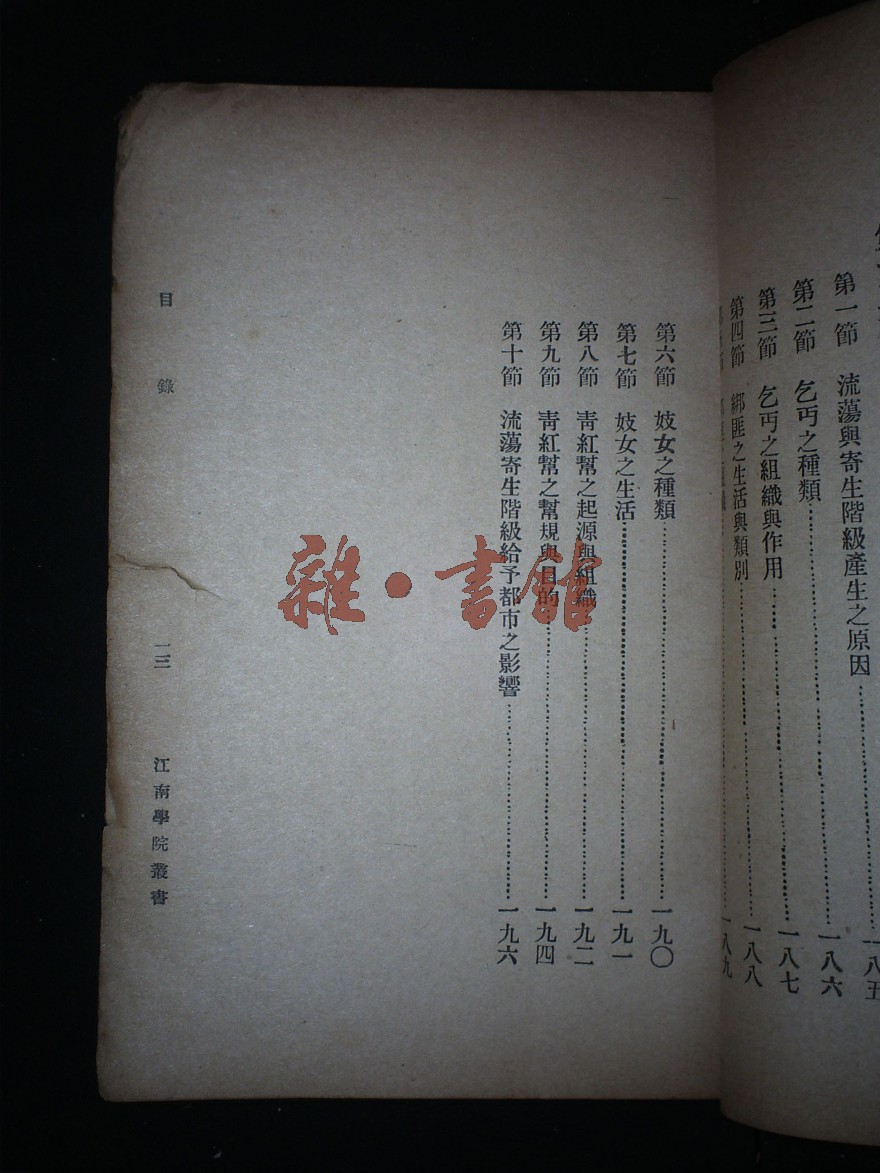 第一節　流蕩與寄生階級產生之原因……一八五
第二節　乞丐之種類……一八六
第三節　乞丐之組織與作用……一八七
第四節　綁匪之生活與類別……一八八
一八九
第六節　妓女之種類……一九〇
第七節　妓女之生活……一九一
第八節　靑紅幫之起源與組織……一九二
第九節　靑紅幫之幫規與目的……一九四
第十節　流蕩寄生階級給予都市之影響……一九六
目　錄　江南學院叢書
雜·書館